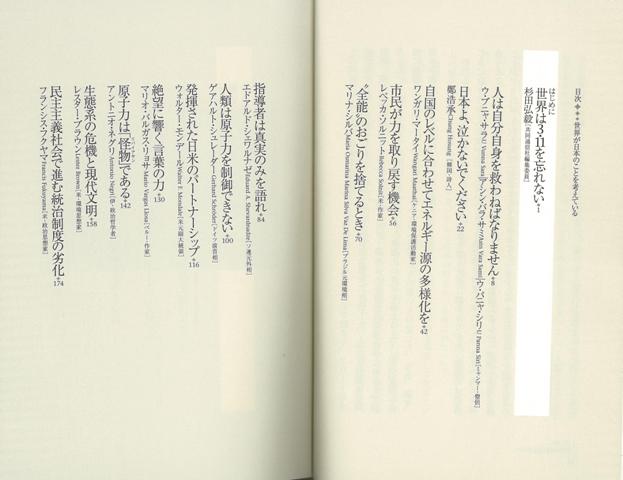 目次 ✦✦✦ 世界が日本のことを考えている
はじめに
世界は3・11を忘れない✦1
杉田弘毅[共同通信社編集委員]
人は自分自身を救わねばなりません✦8
ウ・プニャ・サラ U Punna Sara / アシン・バラ・サミ Asin Vara Sami / ウ・パニャ・シリ U Panna Siri [ミャンマー・僧侶]
日本よ、泣かないでください✦22
鄭浩承 Chung Hoseung [韓国・詩人]
自国のレベルに合わせてエネルギー源の多様化を✦42
ワンガリ・マータイ Wangari Maathai [ケニア・環境保護活動家]
市民が力を取り戻す機会✦56
レベッカ・ソルニット Rebecca Solnit [米・作家]
“全能”のおごりを捨てるとき✦70
マリナ・シルバ Maria Osmarina Marina Silva Vaz De Lima [ブラジル元環境相]
指導者は真実のみを語れ✦84
エドアルド・シェワルナゼ Eduard A. Shevardnadze [ソ連元外相]
人類は原子力を制御できない✦100
ゲアハルト・シュレーダー Gerhard Schröder [ドイツ前首相]
発揮された日米のパートナーシップ✦116
ウォルター・モンデール Walter F. Mondale [米元副大統領]
絶望に響く言葉の力✦130
マリオ・バルガス・リョサ Mario Vargas Llosa [ペルー・作家]
原子力は「怪物」である✦142
アントニオ・ネグリ Antonio Negri [伊・政治哲学者]
生態系の危機と現代文明✦158
レスター・ブラウン Lester Brown [米・環境思想家]
民主主義社会で進む統治制度の劣化✦174
フランシス・フクヤマ Francis Fukuyama [米・政治思想家]